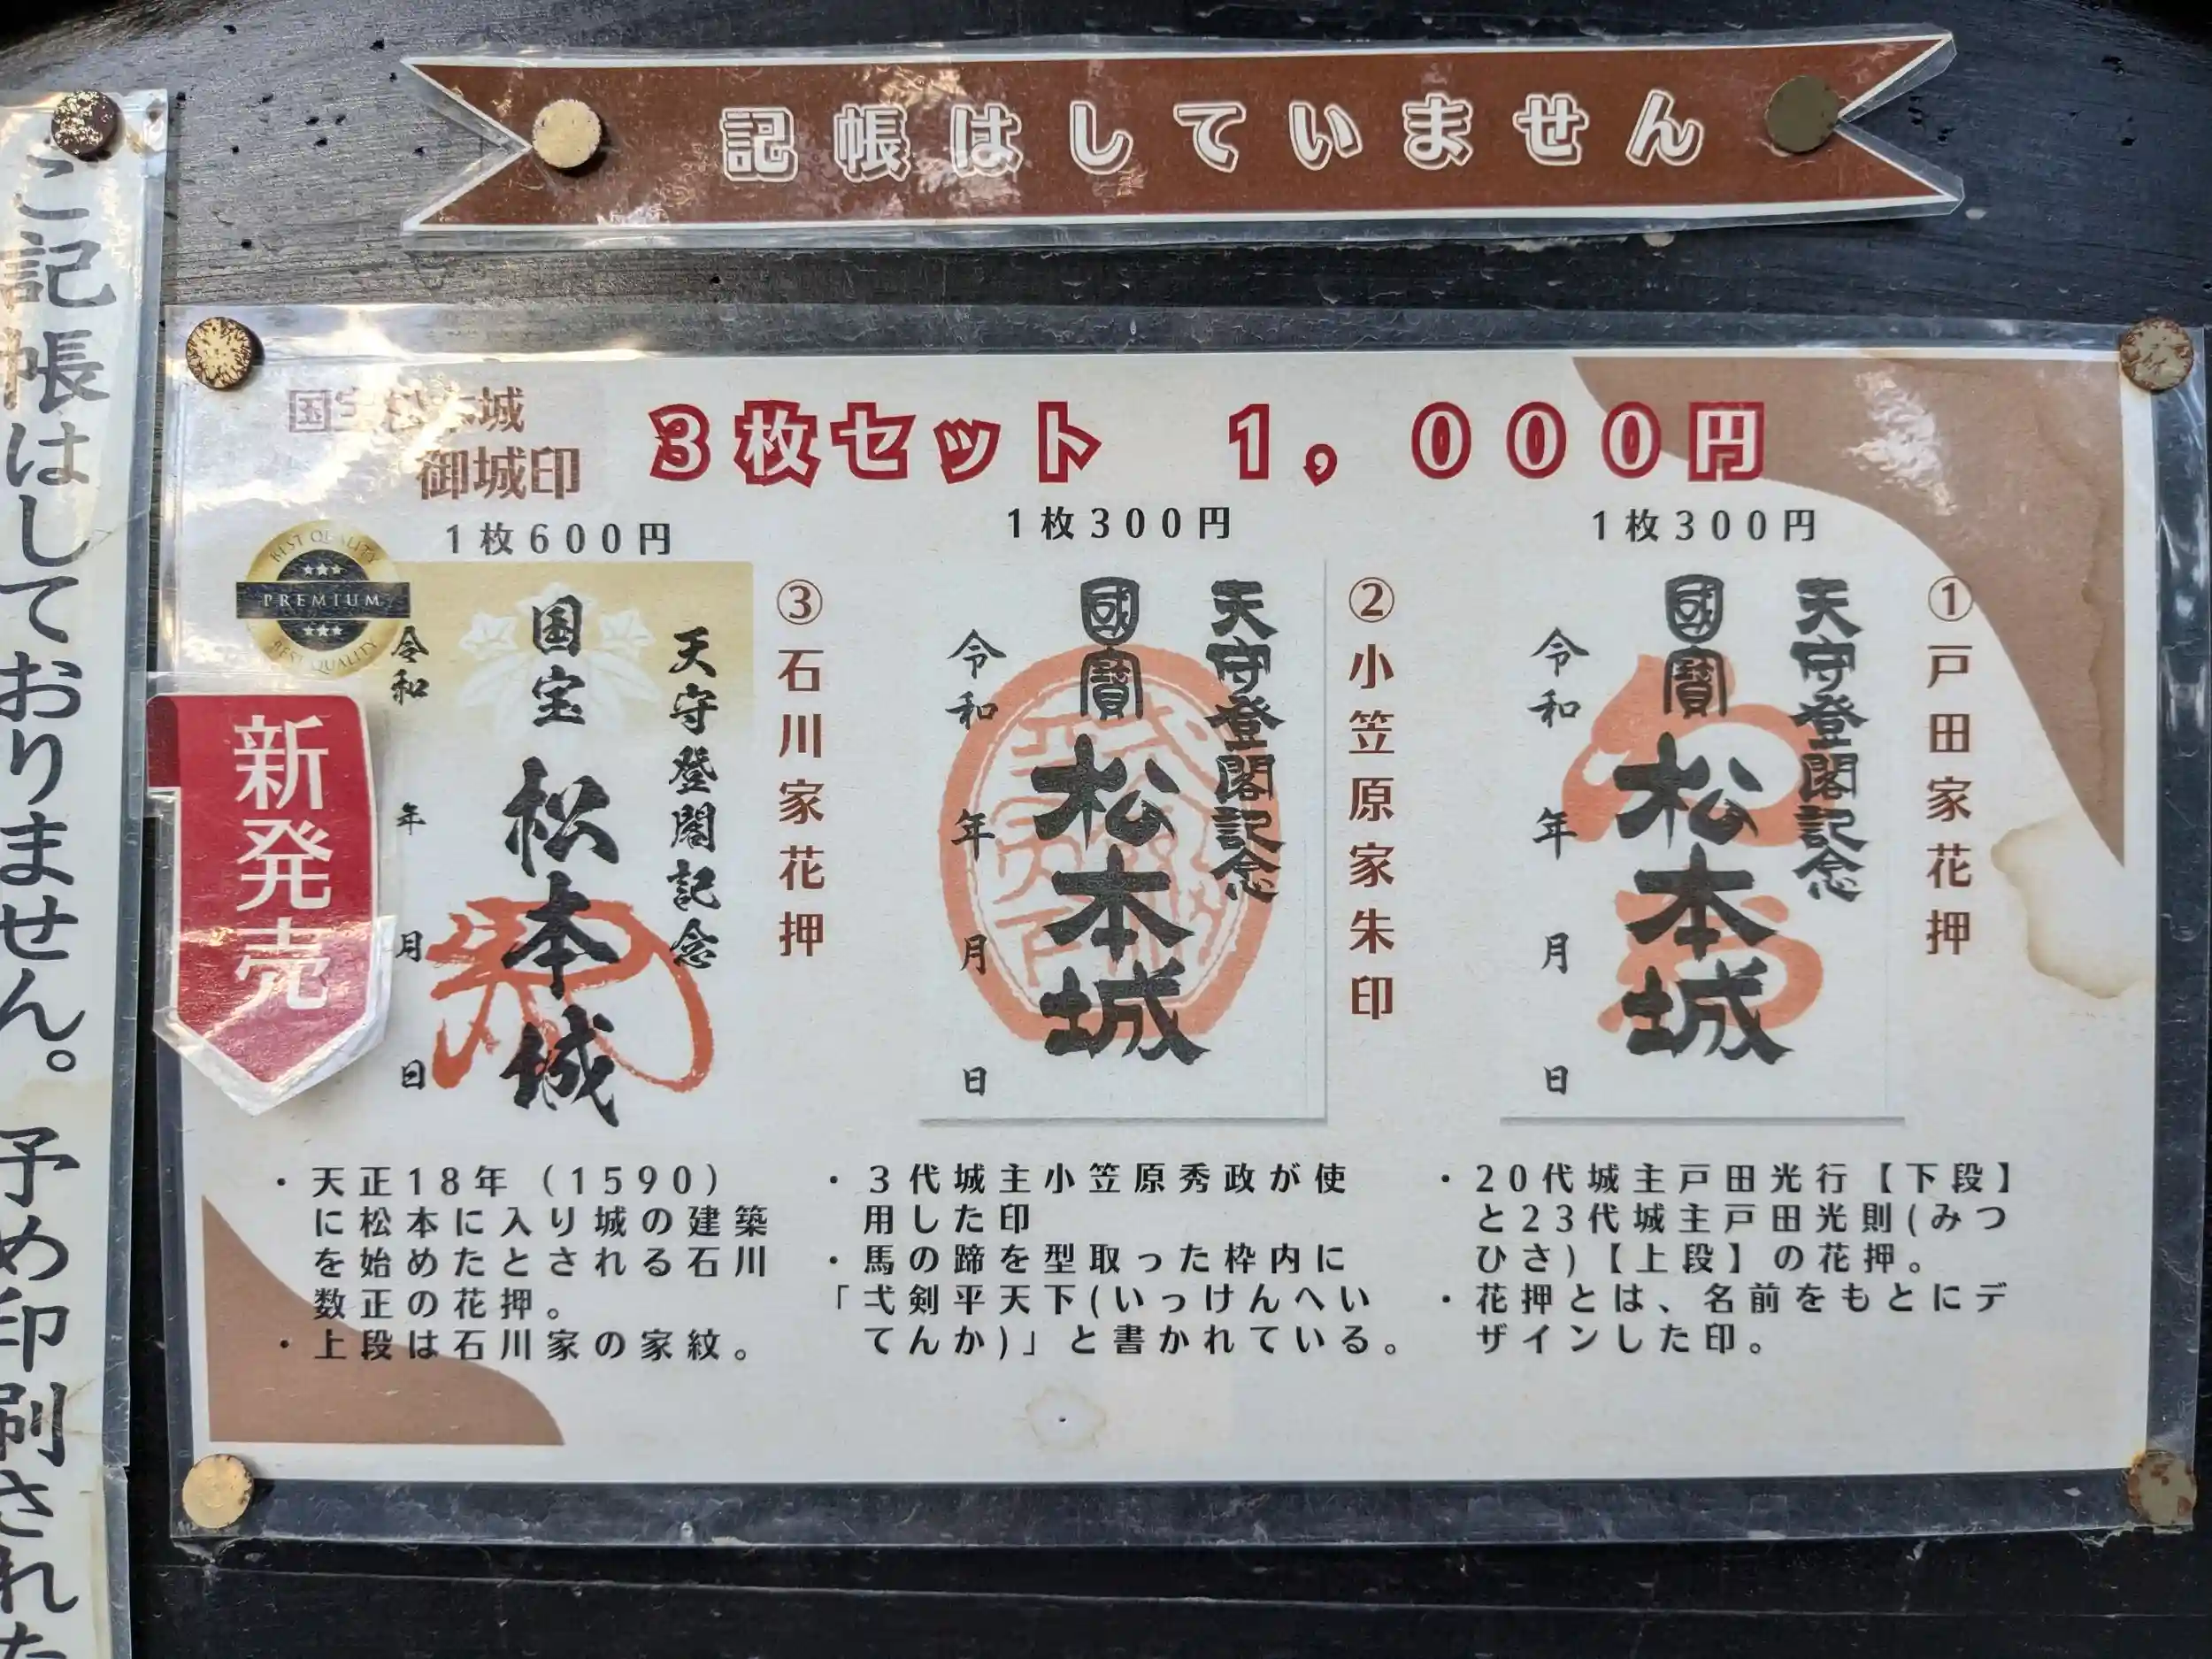 記帳はしていません
ご記帳はしておりません。予め印刷された
国宝松本城
御城印
3枚セット 1,000円
1枚600円
1枚300円
1枚300円
BEST QUALITY
PREMIUM
BEST QUALITY
新発売
①戸田家花押
天守登閣記念
國寶 松本城
令和 年 月 日
②小笠原家朱印
天守登閣記念
國寶 松本城
令和 年 月 日
③石川家花押
天守登閣記念
国宝 松本城
令和 年 月 日
・天正18年(1590)
に松本に入り城の建築
を始めたとされる石川
数正の花押。
・上段は石川家の家紋。
・3代城主小笠原秀政が使
用した印
・馬の蹄を型取った枠内に
「弌剣平天下(いっけんへい
てんか)」と書かれている。
・20代城主戸田光行【下段】
と23代城主戸田光則(みつ
ひさ)【上段】の花押。
・花押とは、名前をもとにデ
ザインした印。